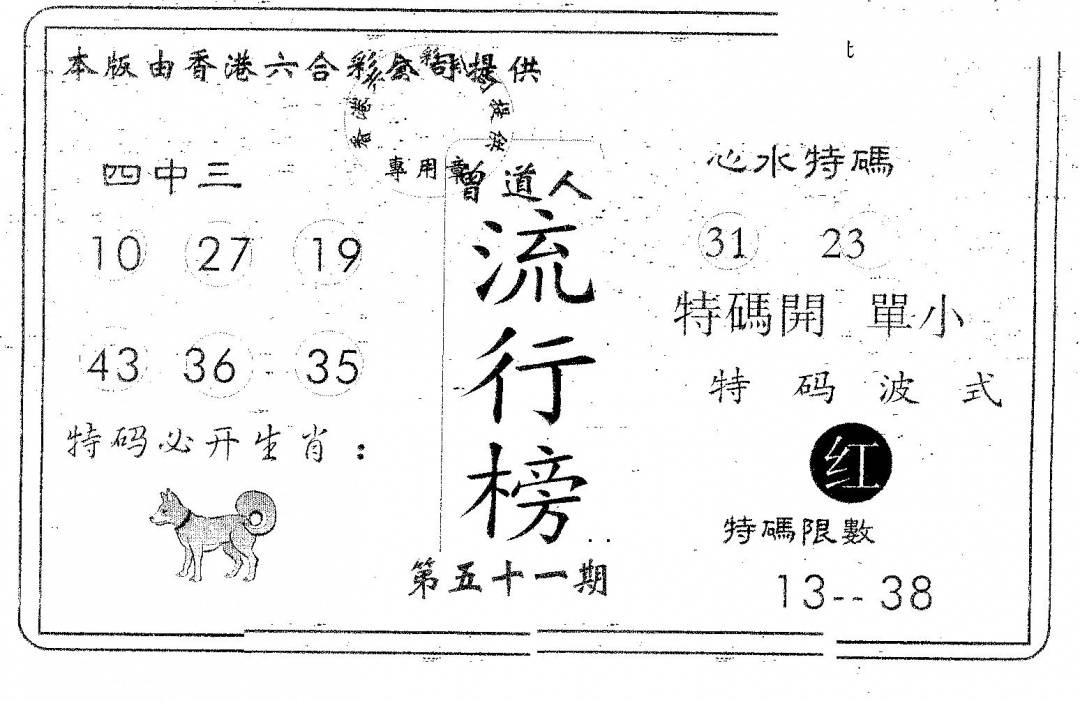 本版由香港六合彩公司提供
香港 彩 提供
專用章
四中三
10 27 19
43 36 35
特码必开生肖：
曾道人
流行榜
第五十一期
心水特碼
31 23
特碼開 單小
特码波式
红
特碼限數
13--38